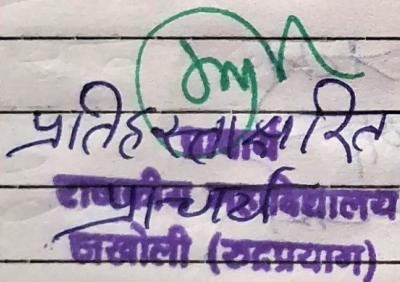 प्रतिहस्ताक्षरित
प्राचार्य
प्राचार्य
राजकीय महाविद्यालय
जखोली (रुद्रप्रयाग)